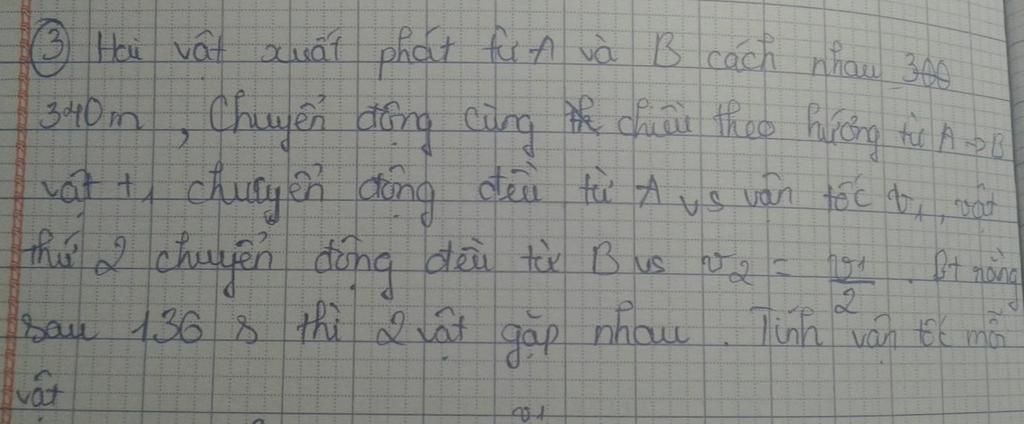 ③ Hai vật xuất phát từ A và B cách nhau 300
340m, Chuyển động cùng chiều theo hướng từ A→B
vật t1 chuyển động đều từ A vs vận tốc v1, vật
thứ 2 chuyển động đều từ B vs v2 = v1/2. Bt rằng
sau 136 s thì 2 vật gặp nhau. Tính vận tốc mỗi
vật
v1